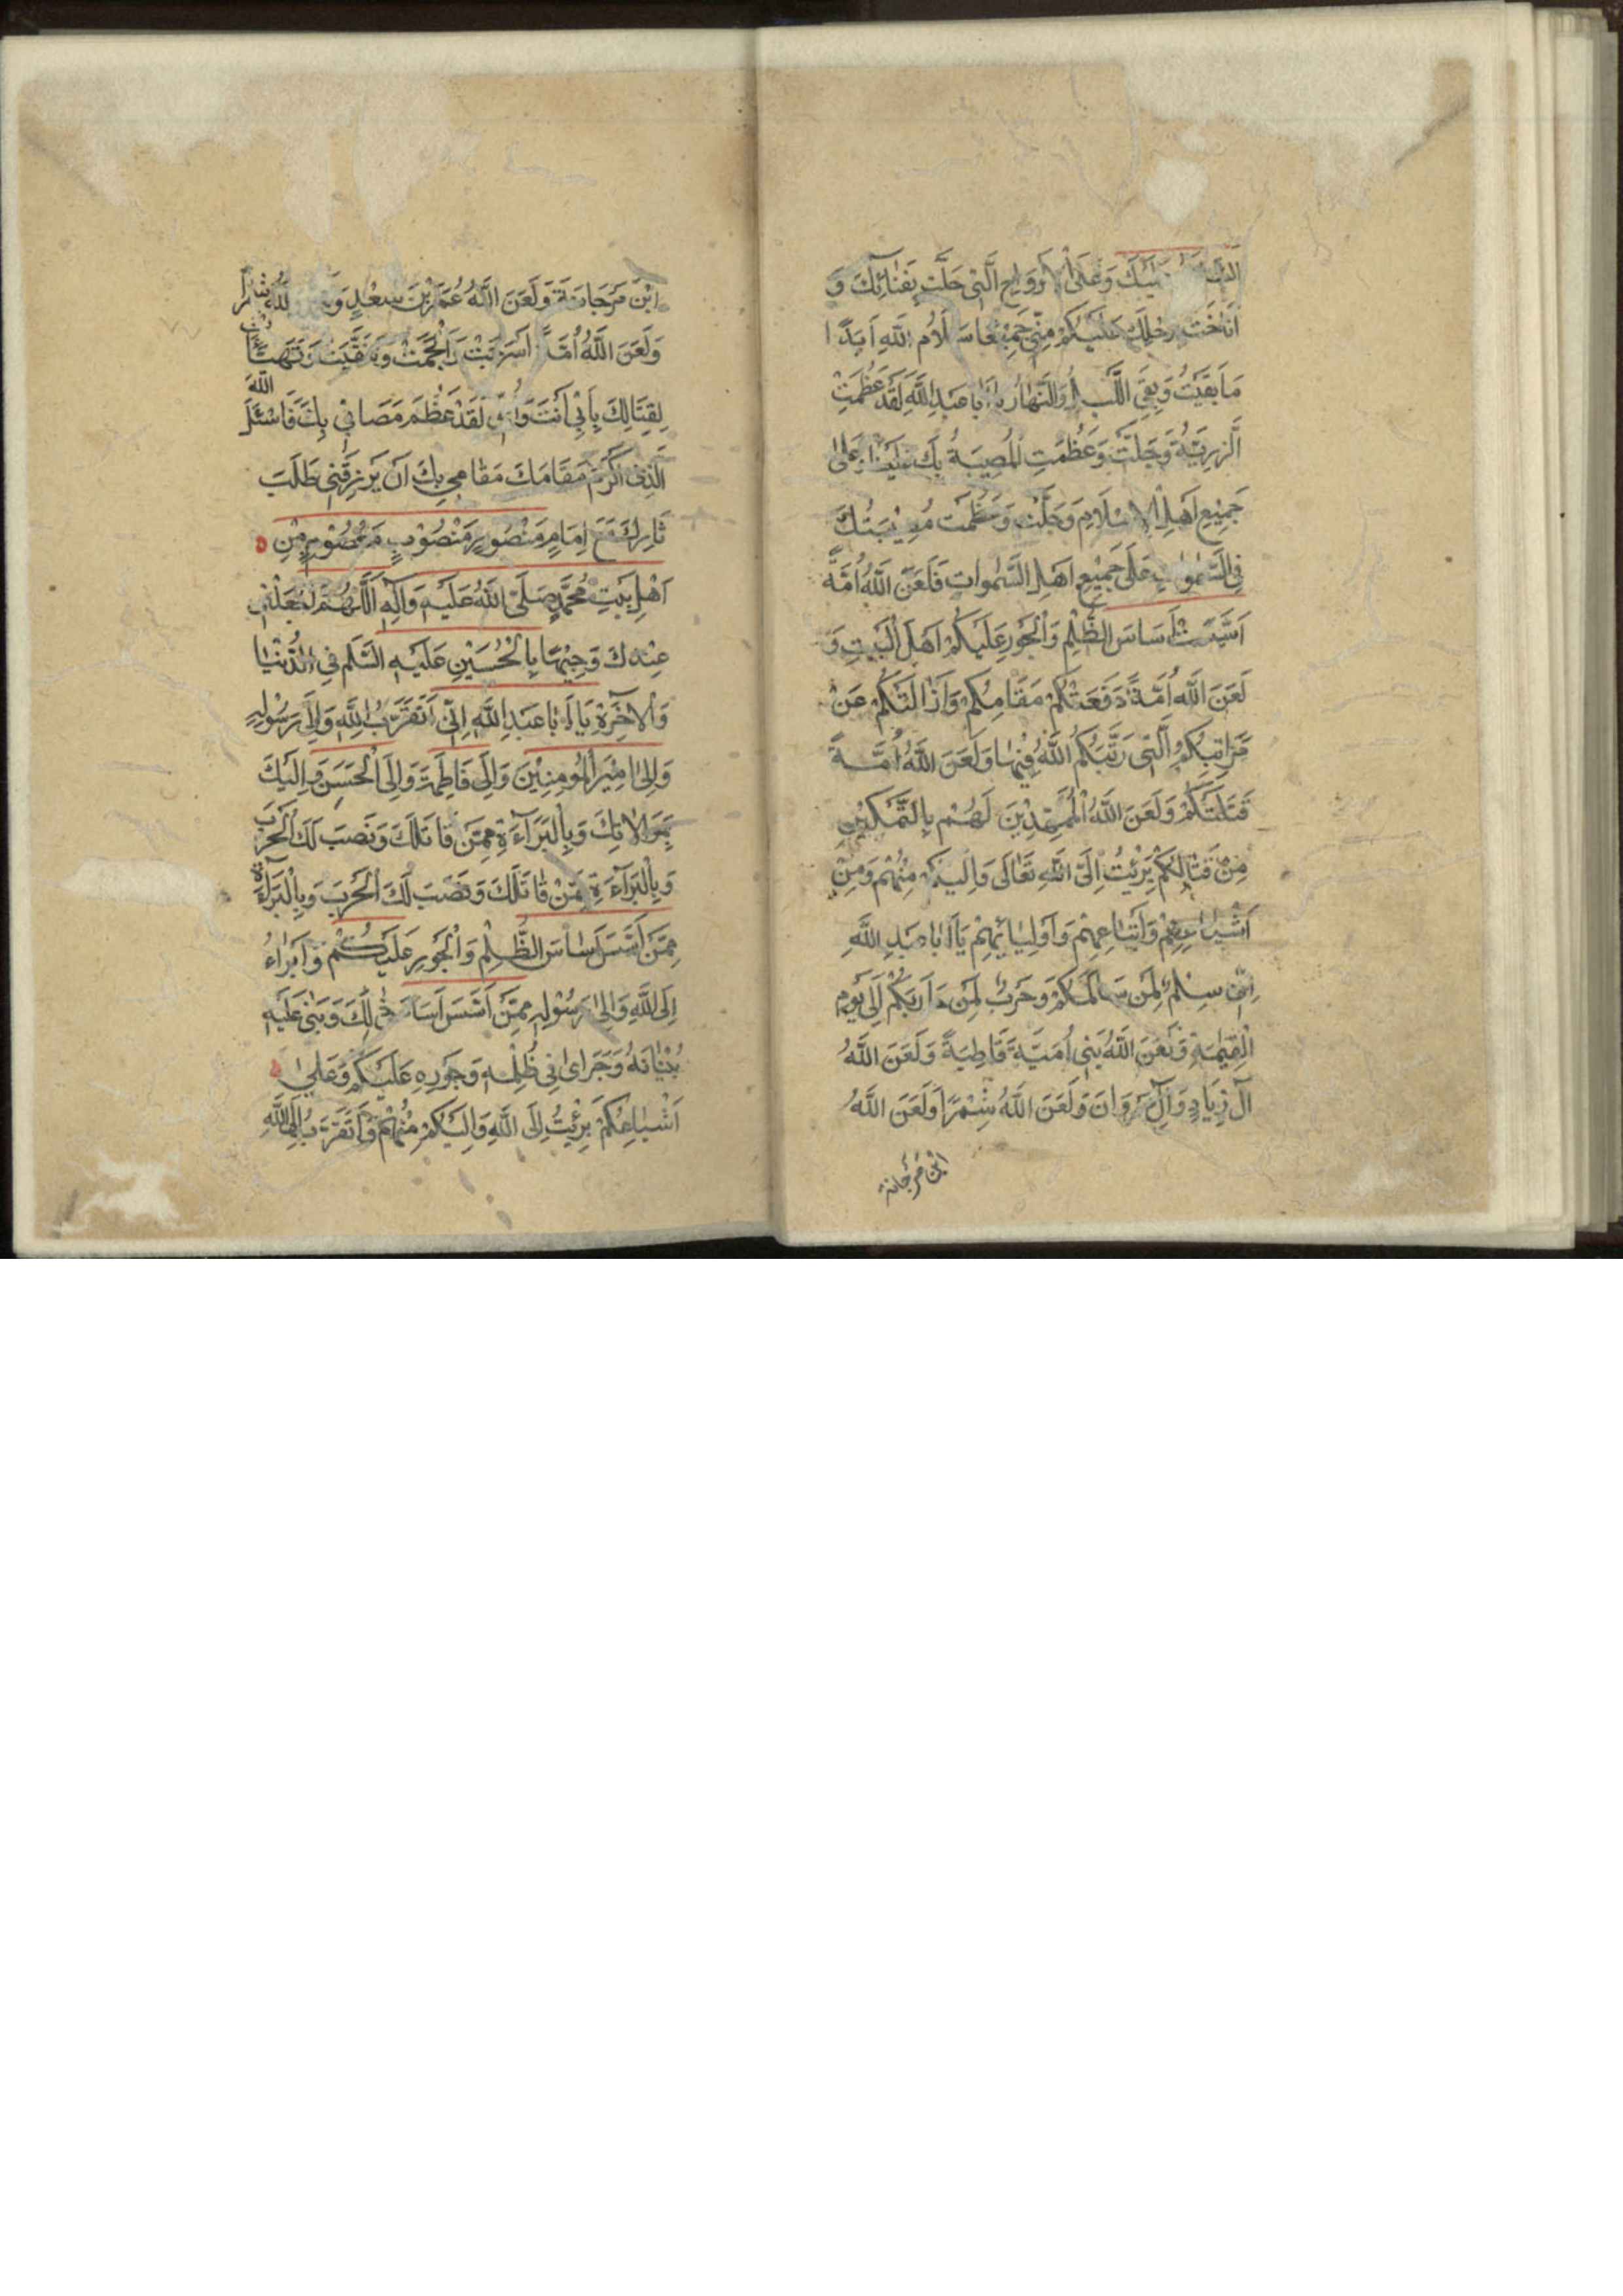 وَعَلَى الْاَرْوَاحِ الَّتِي حَلَّتْ بِفَنَائِكَ وَ
اَنَاخَتْ بِرَحْلِكَ عَلَيْكُمْ مِنِّي جَمِيْعًا سَلَامُ اللّٰهِ اَبَدًا
مَا بَقِيْتُ وَبَقِيَ الَّيْلُ وَالنَّهَارُ يَا اَبَا عَبْدِ اللّٰهِ لَقَدْ عَظُمَتِ
الرَّزِيَّةُ وَجَلَّتْ وَعَظُمَتِ الْمُصِيْبَةُ بِكَ عَلَيْنَا وَعَلٰى
جَمِيْعِ اَهْلِ الْاِسْلَامِ وَجَلَّتْ وَعَظُمَتْ مُصِيْبَتُكَ
فِي السَّمٰوَاتِ عَلٰى جَمِيْعِ اَهْلِ السَّمٰوَاتِ فَلَعَنَ اللّٰهُ اُمَّةً
اَسَّسَتْ اَسَاسَ الظُّلْمِ وَالْجَوْرِ عَلَيْكُمْ اَهْلَ الْبَيْتِ وَ
لَعَنَ اللّٰهُ اُمَّةً دَفَعَتْكُمْ مَقَامِكُمْ وَاَزَالَتْكُمْ عَنْ
مَرَاتِبِكُمُ الَّتِي رَتَّبَكُمُ اللّٰهُ فِيْهَا وَلَعَنَ اللّٰهُ اُمَّةً
قَتَلَتْكُمْ وَلَعَنَ اللّٰهُ الْمُمَهِّدِيْنَ لَهُمْ بِالتَّمْكِيْنِ
مِنْ قِتَالِكُمْ بَرِئْتُ اِلَى اللّٰهِ تَعَالٰى وَاِلَيْكُمْ مِنْهُمْ وَمِنْ
اَشْيَاعِهِمْ وَاَتْبَاعِهِمْ وَاَوْلِيَائِهِمْ يَا اَبَا عَبْدِ اللّٰهِ
اِنِّي سِلْمٌ لِمَنْ سَالَمَكُمْ وَحَرْبٌ لِمَنْ حَارَبَكُمْ اِلٰى يَوْمِ
الْقِيٰمَةِ وَلَعَنَ اللّٰهُ بَنِي اُمَيَّةَ قَاطِبَةً وَلَعَنَ اللّٰهُ
آلَ زِيَادٍ وَآلَ مَرْوَانَ وَلَعَنَ اللّٰهُ شِمْرًا وَلَعَنَ اللّٰهُ
ابْنَ مَرْجَانَة
ابْنَ مَرْجَانَةَ وَلَعَنَ اللّٰهُ عُمَرَ بْنَ سَعْدٍ
وَلَعَنَ اللّٰهُ اُمَّةً اَسْرَجَتْ وَالْجَمَتْ وَتَنَقَّبَتْ وَتَهَيَّأَتْ
لِقِتَالِكَ بِاَبِي اَنْتَ وَاُمِّي لَقَدْ عَظُمَ مَصَابِي بِكَ فَاَسْئَلُ اللّٰهَ
الَّذِي اَكْرَمَ مَقَامَكَ مَقَامِي بِكَ اَنْ يَرْزُقَنِي طَلَبَ
ثَارِكَ مَعَ اِمَامٍ مَنْصُورٍ مَنْصُوْبٍ مَعْصُوْمٍ مِنْ
اَهْلِ بَيْتِ مُحَمَّدٍ صَلَّى اللّٰهُ عَلَيْهِ وَآلِهِ اَللّٰهُمَّ اجْعَلْنِي
عِنْدَكَ وَجِيْهًا بِالْحُسَيْنِ عَلَيْهِ السَّلَمْ فِي الدُّنْيَا
وَالْاٰخِرَةِ يَا اَبَا عَبْدِ اللّٰهِ اِنِّي اَتَقَرَّبُ اِلَى اللّٰهِ وَاِلٰى رَسُوْلِهِ
وَاِلٰى اَمِيْرِ الْمُؤْمِنِيْنَ وَاِلٰى فَاطِمَةَ وَاِلَى الْحَسَنِ وَاِلَيْكَ
بِمَوَالَاتِكَ وَبِالْبَرَآءَةِ مِمَّنْ قَاتَلَكَ وَنَصَبَ لَكَ الْحَرْبَ
وَبِالْبَرَآءَةِ مِمَّنْ قَاتَلَكَ وَنَصَبَ لَكَ الْحَرْبَ وَبِالْبَرَآءَةِ
مِمَّنْ اَسَّسَ اَسَاسَ الظُّلْمِ وَالْجَوْرِ عَلَيْكُمْ وَاَبْرَاُ
اِلَى اللّٰهِ وَاِلٰى رَسُوْلِهِ مِمَّنْ اَسَّسَ اَسَاسَ ذٰلِكَ وَبَنٰى عَلَيْهِ
بُنْيَانَهُ وَجَرٰى فِي ظُلْمِهِ وَجَوْرِهِ عَلَيْكُمْ وَعَلٰى
اَشْيَاعِكُمْ بَرِئْتُ اِلَى اللّٰهِ وَاِلَيْكُمْ مِنْهُمْ وَاَتَقَرَّبُ اِلَى اللّٰهِ